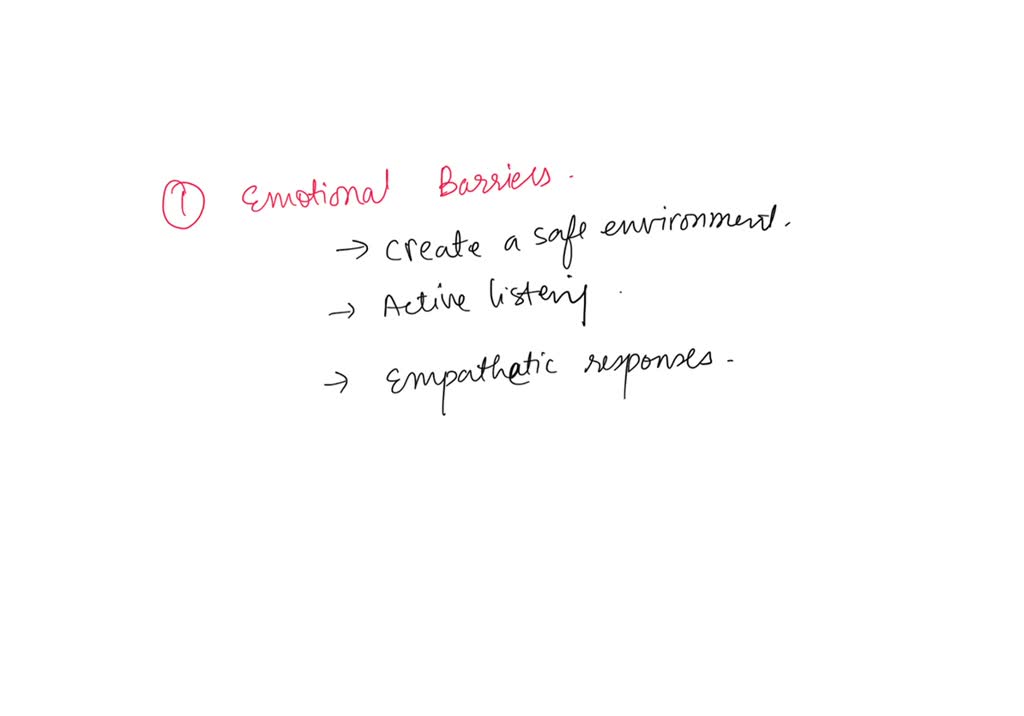 ① Emotional Barriers.
→ Create a safe environment.
→ Active listening.
→ Empathetic responses.